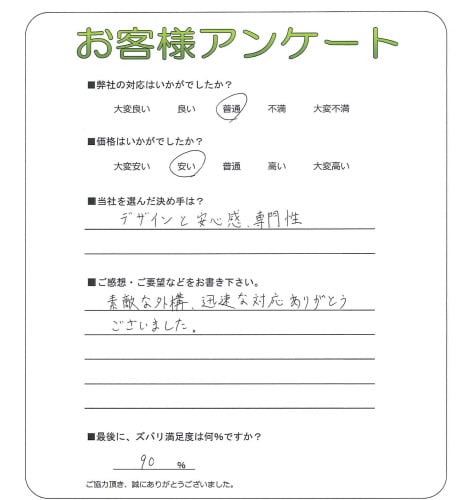 お客様アンケート
■弊社の対応はいかがでしたか？
大変良い 良い 普通 不満 大変不満
■価格はいかがでしたか？
大変安い 安い 普通 高い 大変高い
■当社を選んだ決め手は？
デザインと安心感、専門性
■ご感想・ご要望などをお書き下さい。
素敵な外構、迅速な対応ありがとう
ございました。
■最後に、ズバリ満足度は何%ですか？
90 %
ご協力頂き、誠にありがとうございました。